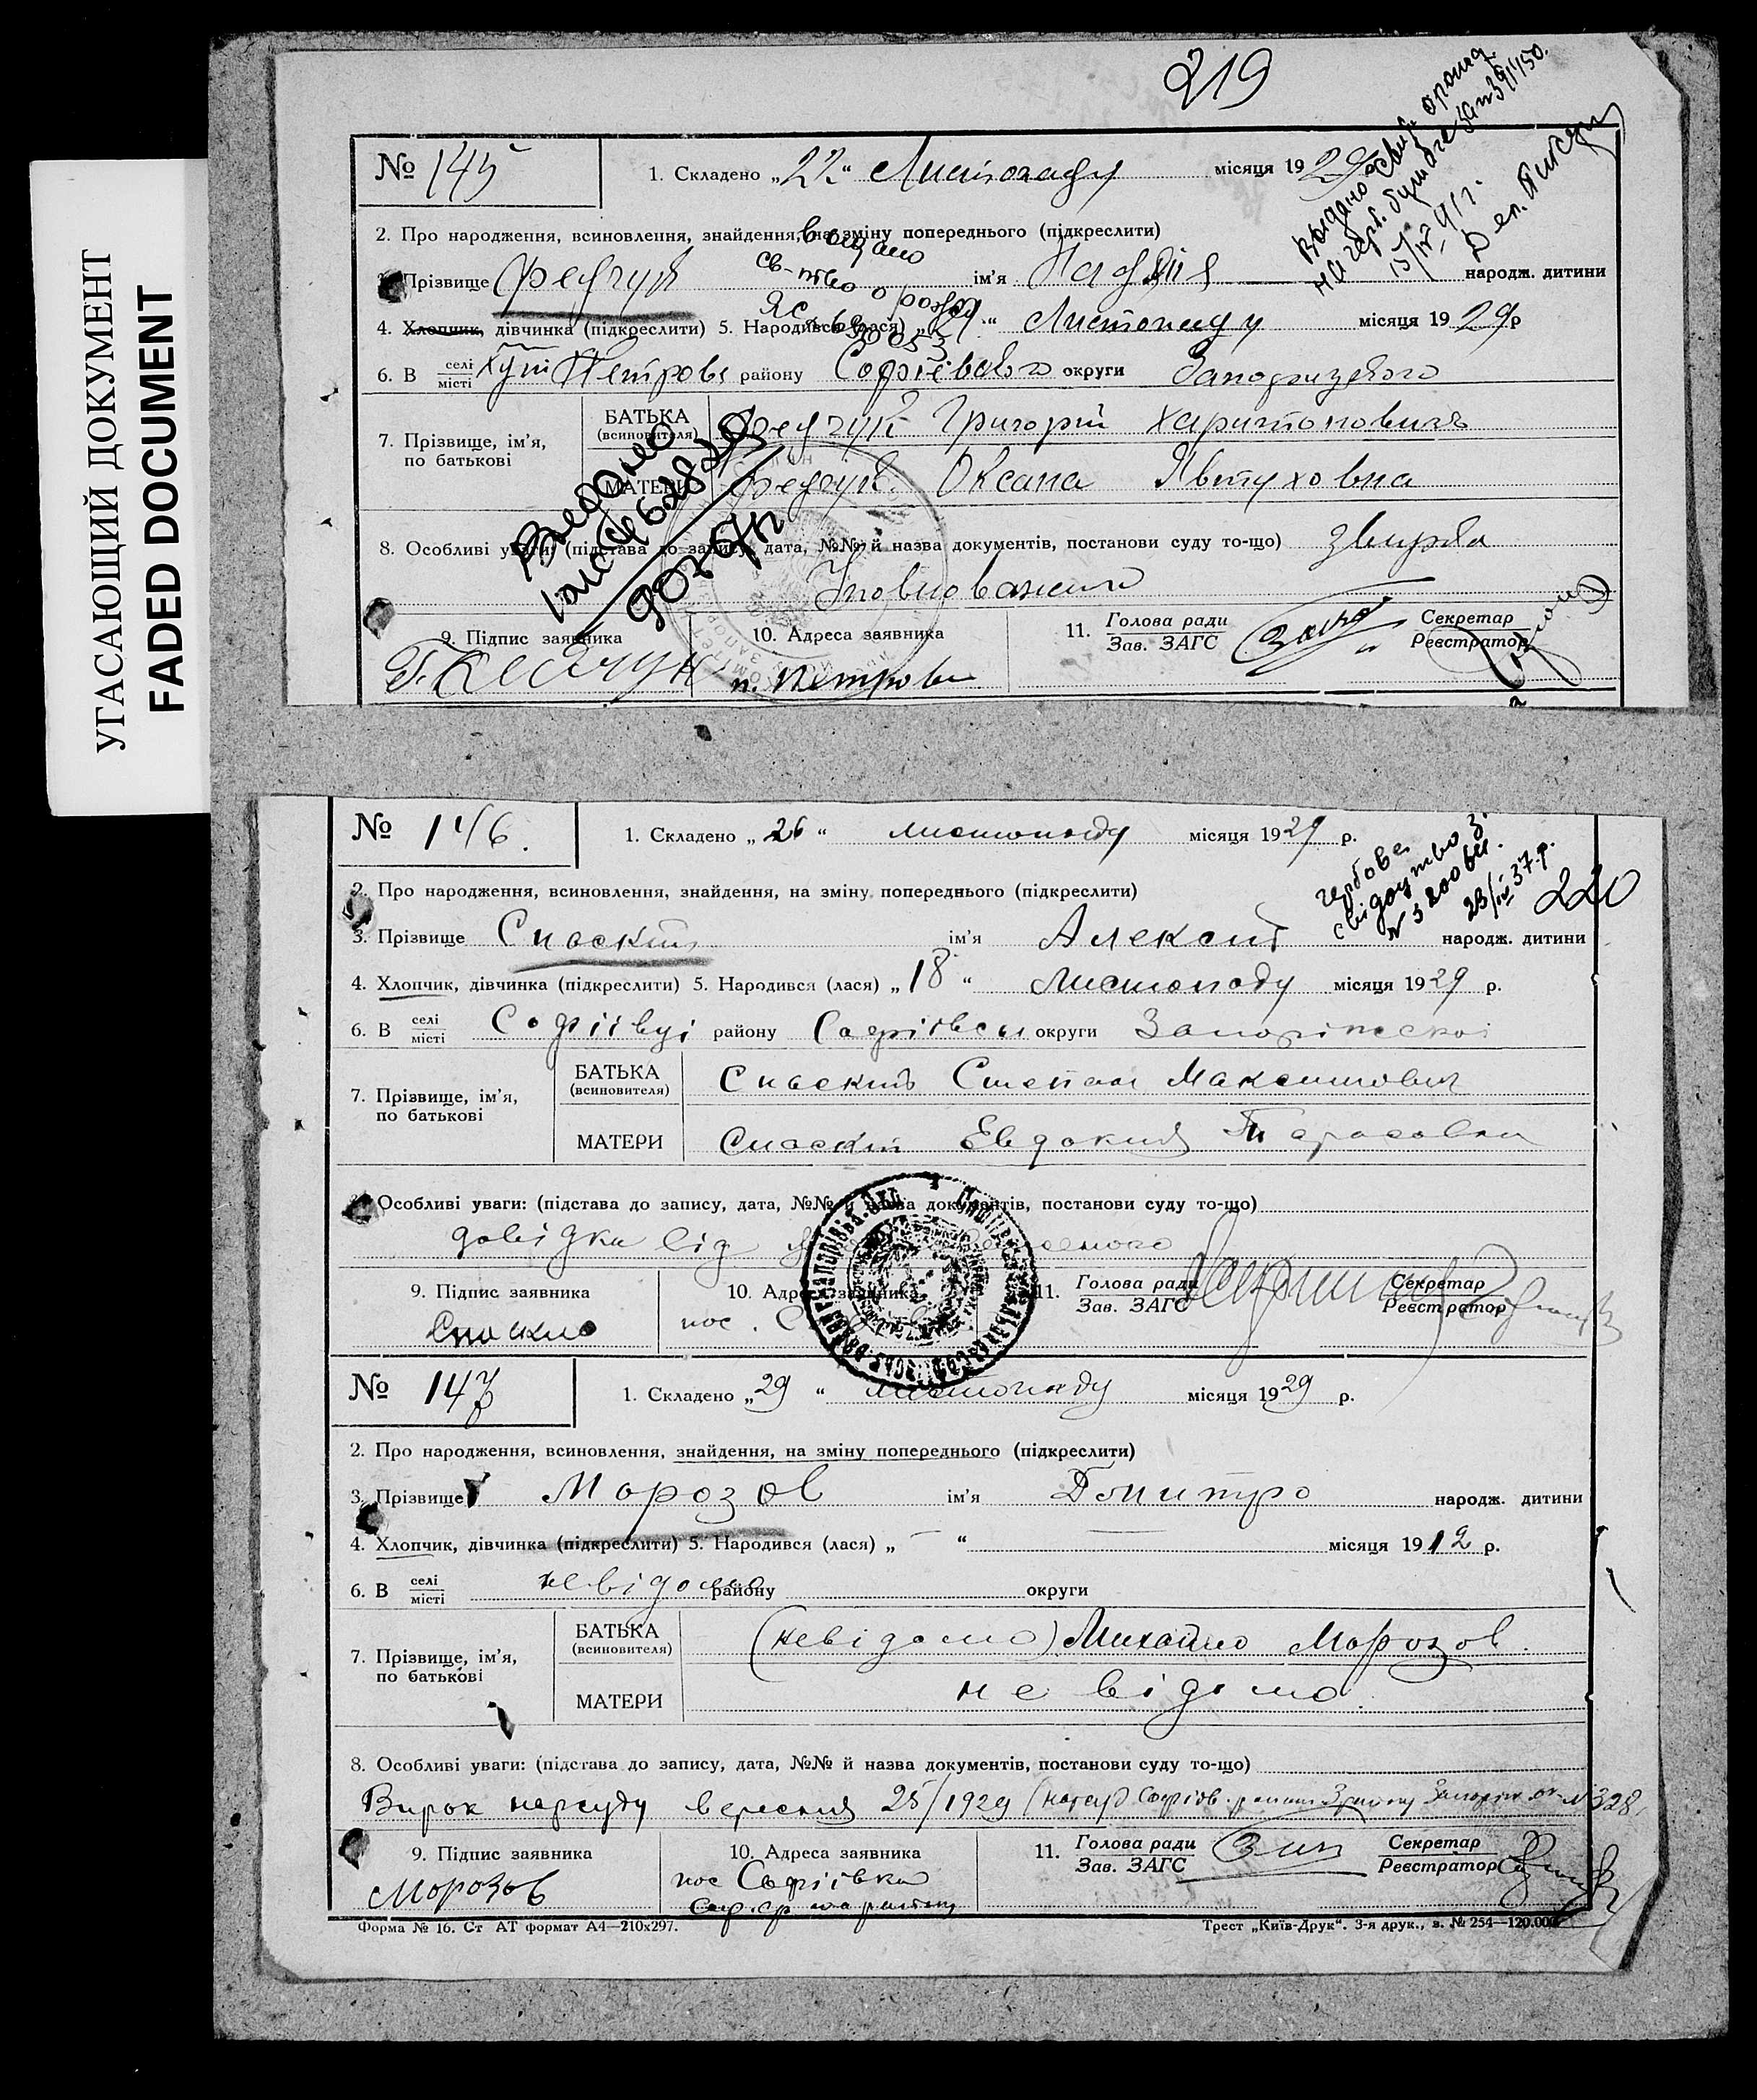 УГАСАЮЩИЙ ДОКУМЕНТ
FADED DOCUMENT
219
№ 145
1. Складено „22“ Листопаду місяця 1929
2. Про народження, всиновлення, знайдення, на зміну попереднього (підкреслити)
Прізвище Федчук ім'я Надія народж. дитини
4. Хлопчик, дівчинка (підкреслити) 5. Народився (лася) „21“ Листопаду місяця 1929 р
6. В селі місті хут Петрове району Софіевсько округи
7. Прізвище, ім'я, по батькові
БАТЬКА (всиновителя) Федчук Григорій Харитонович
МАТЕРИ Федчук Оксана Явтуховна
8. Особливі уваги: (підстава до запису, дата, №№ й назва документів, постанови суду то-що)
Уповноваженого
9. Підпис заявника
10. Адреса заявника
п. Петрове
11. Голова ради
Зав. ЗАГС
Секретар
Реєстратор
Видано
№ 146.
1. Складено „26“ листопаду місяця 1929 р.
2. Про народження, всиновлення, знайдення, на зміну попереднього (підкреслити)
гербове
свідоцтво
23/IV 37.р.
220
3. Прізвище Спаский ім'я Алексій народж. дитини
4. Хлопчик, дівчинка (підкреслити) 5. Народився (лася) „18“ Листопаду місяця 1929 р.
6. В селі місті Софіівці району Софіівськ округи Запоріжскоі
7. Прізвище, ім'я, по батькові
БАТЬКА (всиновителя) Спаский Степан Максимович
МАТЕРИ Спаский Евдокия Тарасовна
Особливі уваги: (підстава до запису, дата, №№ й назва документів, постанови суду то-що)
довідка від
9. Підпис заявника
10. Адреса заявника
пос.
11. Голова ради
Зав. ЗАГС
Секретар
Реєстратор
№ 147
1. Складено „29“ листопаду місяця 1929 р.
2. Про народження, всиновлення, знайдення, на зміну попереднього (підкреслити)
3. Прізвище Морозов ім'я Дмитро народж. дитини
4. Хлопчик, дівчинка (підкреслити) 5. Народився (лася) „—“ — місяця 1912 р.
6. В селі місті невідомо району округи
7. Прізвище, ім'я, по батькові
БАТЬКА (всиновителя) (невідомо) Михайло Морозов.
МАТЕРИ не відомо.
8. Особливі уваги: (підстава до запису, дата, №№ й назва документів, постанови суду то-що)
Вирок нарсуду вересния 25/1929 (нарсуд Софіів. № 328
9. Підпис заявника
Морозов
10. Адреса заявника
пос Софіівка
11. Голова ради
Зав. ЗАГС
Секретар
Реєстратор
Форма № 16. Ст АТ формат А4—210x297.
Трест „Київ-Друк“. 3-я друк., в. № 254—120.000